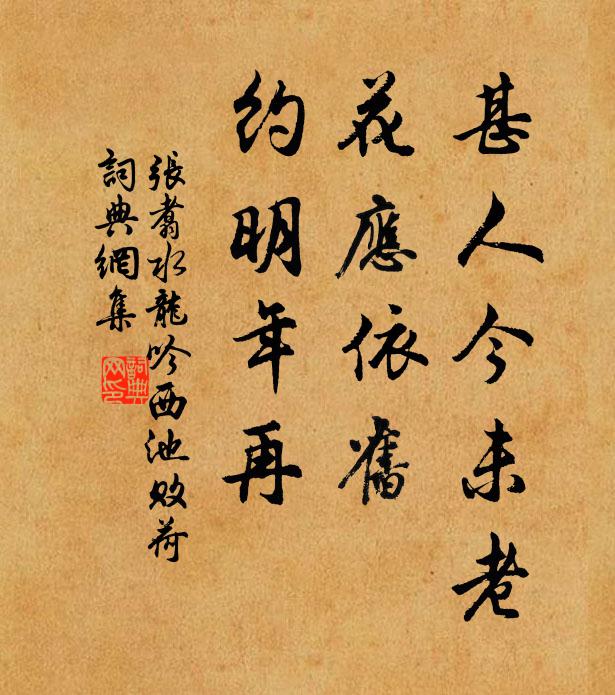 甚人今未老
花應依舊
約明年再
張翥水龍吟西池敗荷
詞典網集
詞典网印